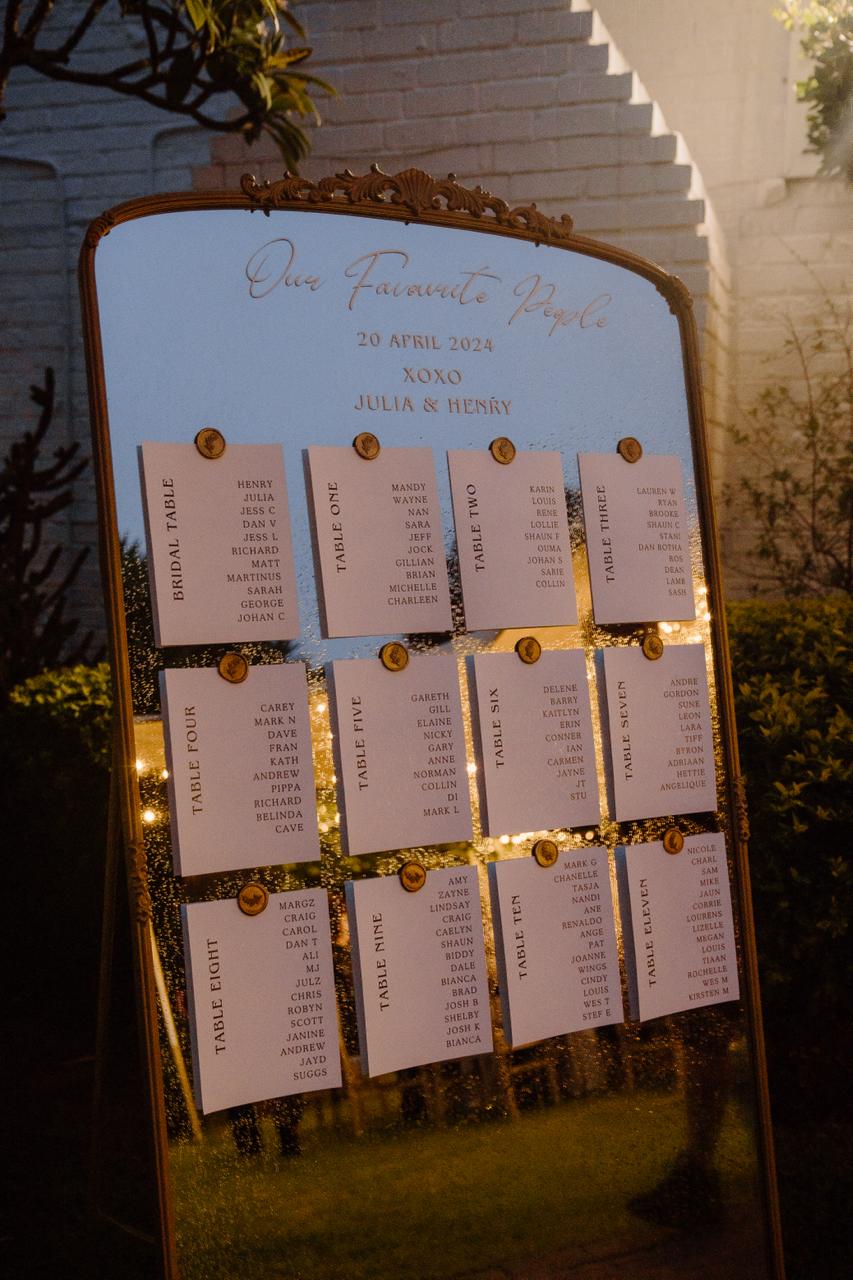 Our Favourite People
20 APRIL 2024
XOXO
JULIA & HENRY
BRIDAL TABLE
HENRY
JULIA
JESS C
DAN V
JESS L
RICHARD
MATT
MARTINUS
SARAH
GEORGE
JOHAN C
TABLE ONE
MANDY
WAYNE
NAN
SARA
JEFF
JOCK
GILLIAN
BRIAN
MICHELLE
CHARLEEN
TABLE TWO
KARIN
LOUIS
RENE
LOLLIE
SHAUN F
OUMA
JOHAN S
SARIE
COLLIN
TABLE THREE
LAUREN W
RYAN
BROOKE
SHAUN C
STANI
DAN BOTHA
ROS
DEAN
LAMB
SASH
TABLE FOUR
CAREY
MARK N
DAVE
FRAN
KATH
ANDREW
PIPPA
RICHARD
BELINDA
CAVE
TABLE FIVE
GARETH
GILL
ELAINE
NICKY
GARY
ANNE
NORMAN
COLLIN
DI
MARK L
TABLE SIX
DELENE
BARRY
KAITLYN
ERIN
CONNER
IAN
CARMEN
JAYNE
JT
STU
TABLE SEVEN
ANDRE
GORDON
SUNE
LEON
LARA
TIFF
BYRON
ADRIAAN
HETTIE
ANGELIQUE
TABLE EIGHT
MARGZ
CRAIG
CAROL
DAN T
ALI
MJ
JULZ
CHRIS
ROBYN
SCOTT
JANINE
ANDREW
JAYD
SUGGS
TABLE NINE
AMY
ZAYNE
LINDSAY
CRAIG
CAELYN
SHAUN
BIDDY
DALE
BIANCA
BRAD
JOSH B
SHELBY
JOSH K
BIANCA
TABLE TEN
MARK G
CHANELLE
TASJA
NANDI
ANE
RENALDO
ANGE
PAT
JOANNE
WINGS
CINDY
LOUIS
WES T
STEF E
TABLE ELEVEN
NICOLE
CHARL
SAM
MIKE
JAUN
CORRIE
LOURENS
LIZELLE
MEGAN
LOUIS
TIAAN
ROCHELLE
WES M
KIRSTEN M